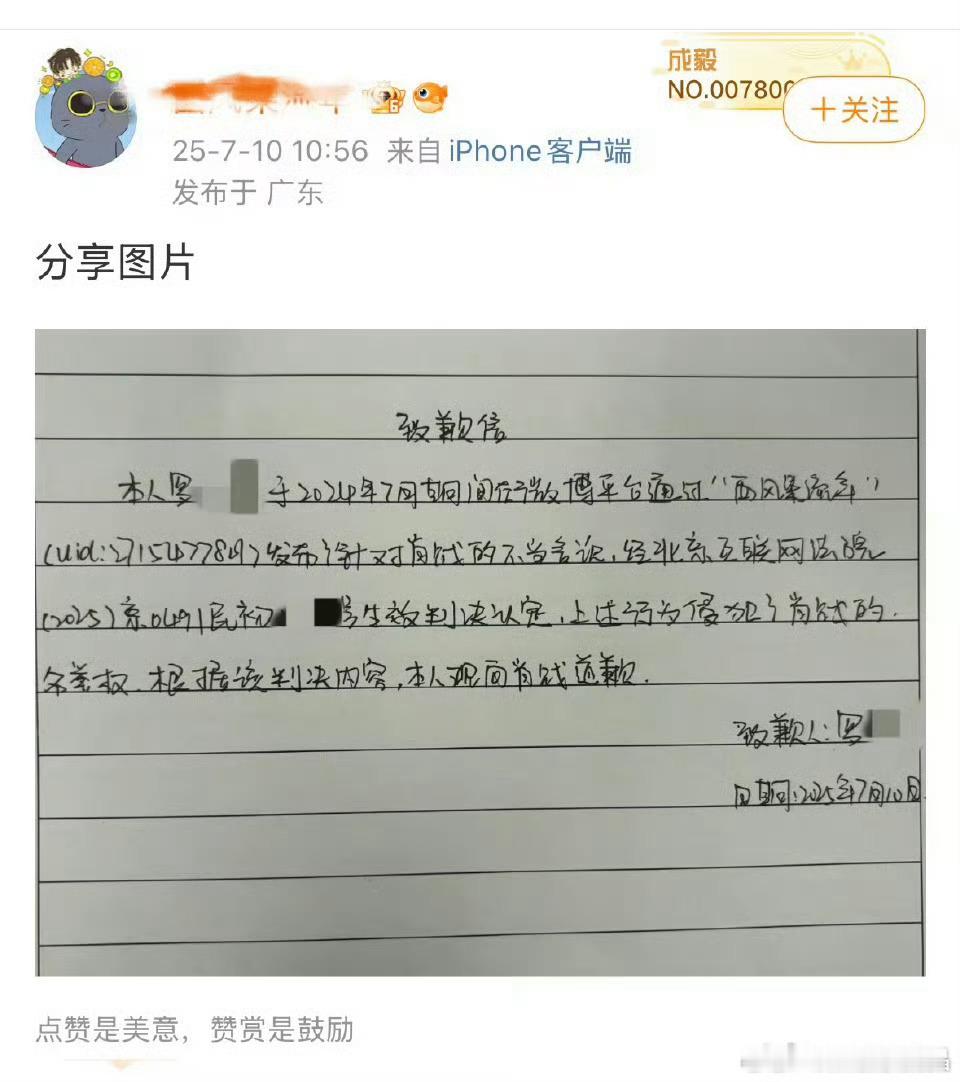 成毅
NO.007800
+关注
25-7-10 10:56 来自 iPhone客户端
发布于 广东
分享图片
致歉信
本人罗 于2024年7月期间在微博平台通过“西风乘流年”
(uid: )发布了针对肖战的不当言论,经北京互联网法院
(2025)京0491民初 号生效判决认定,上述行为侵犯了肖战的
名誉权.根据该判决内容,本人现向肖战道歉.
致歉人:罗
日期:2025年7月10日.
点赞是美意,赞赏是鼓励